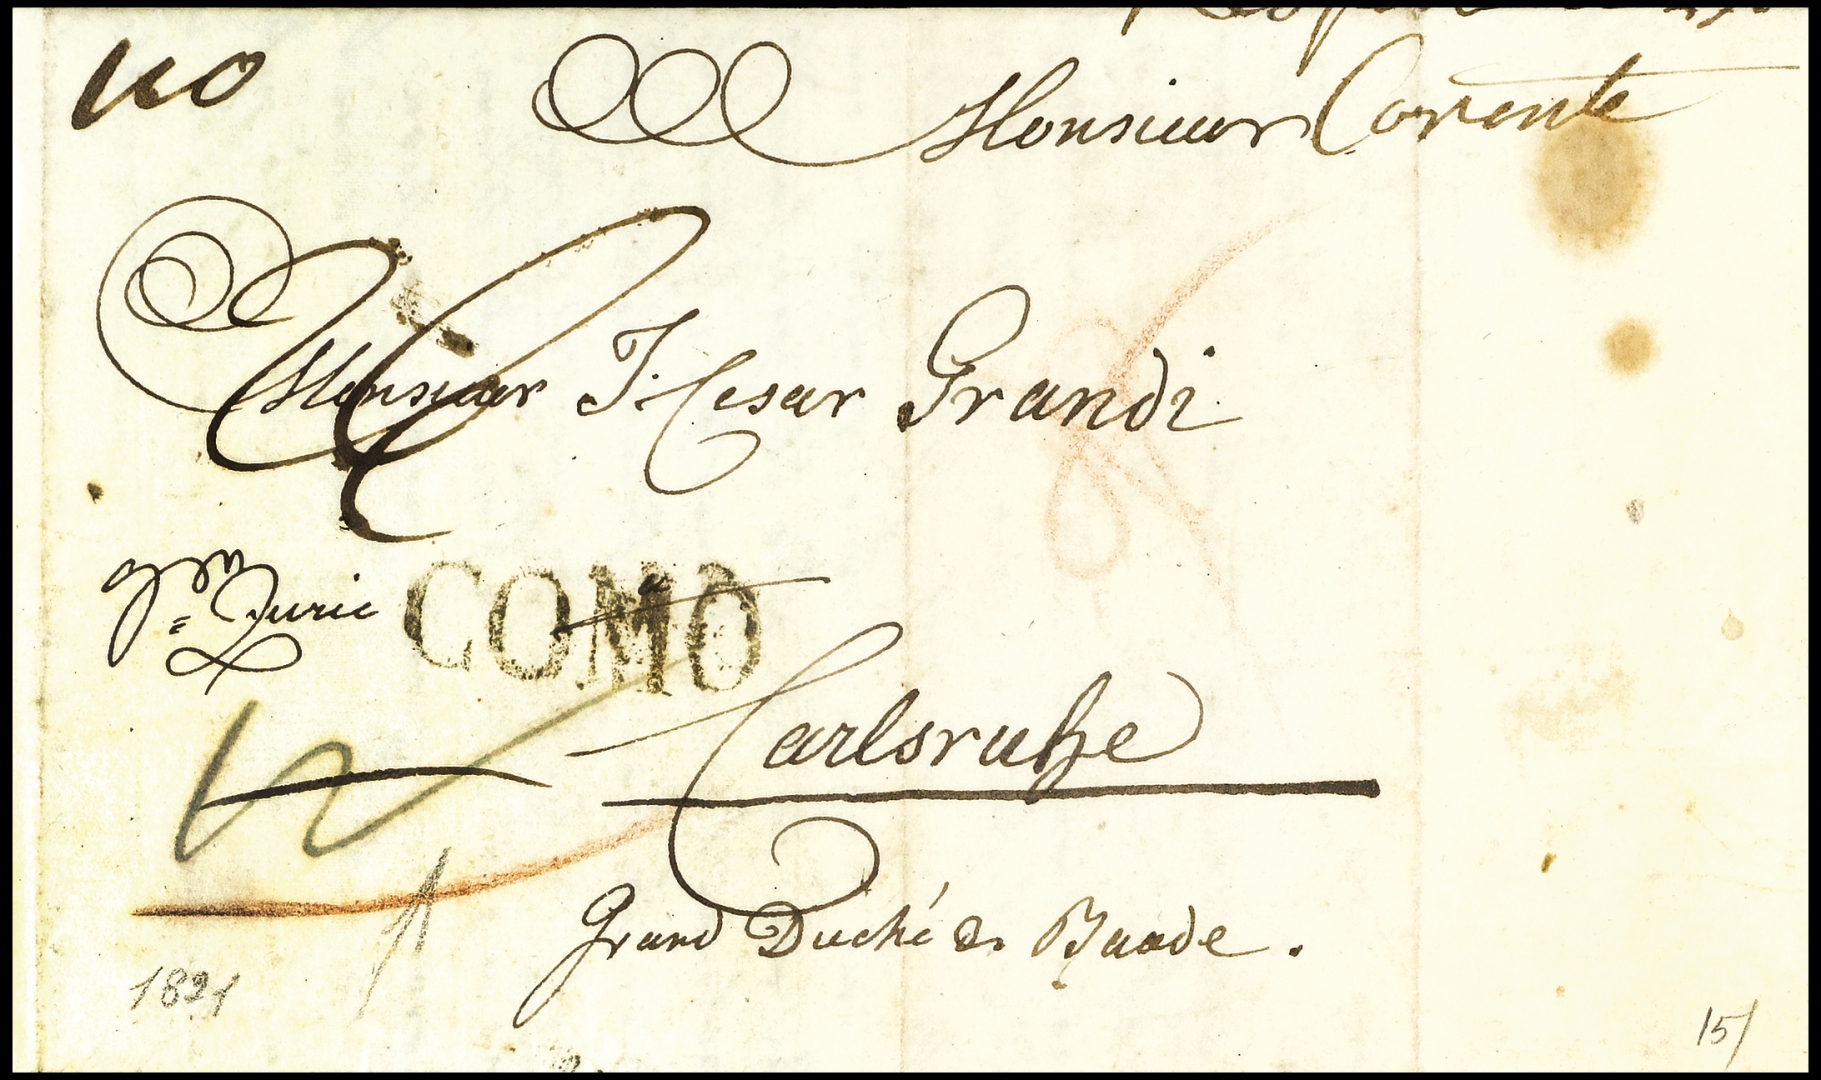 Monsieur Corente
Monsieur J. Cesar Grandi
COMO
Carlsruhe
Grand Duché de Baade.
1821
15/